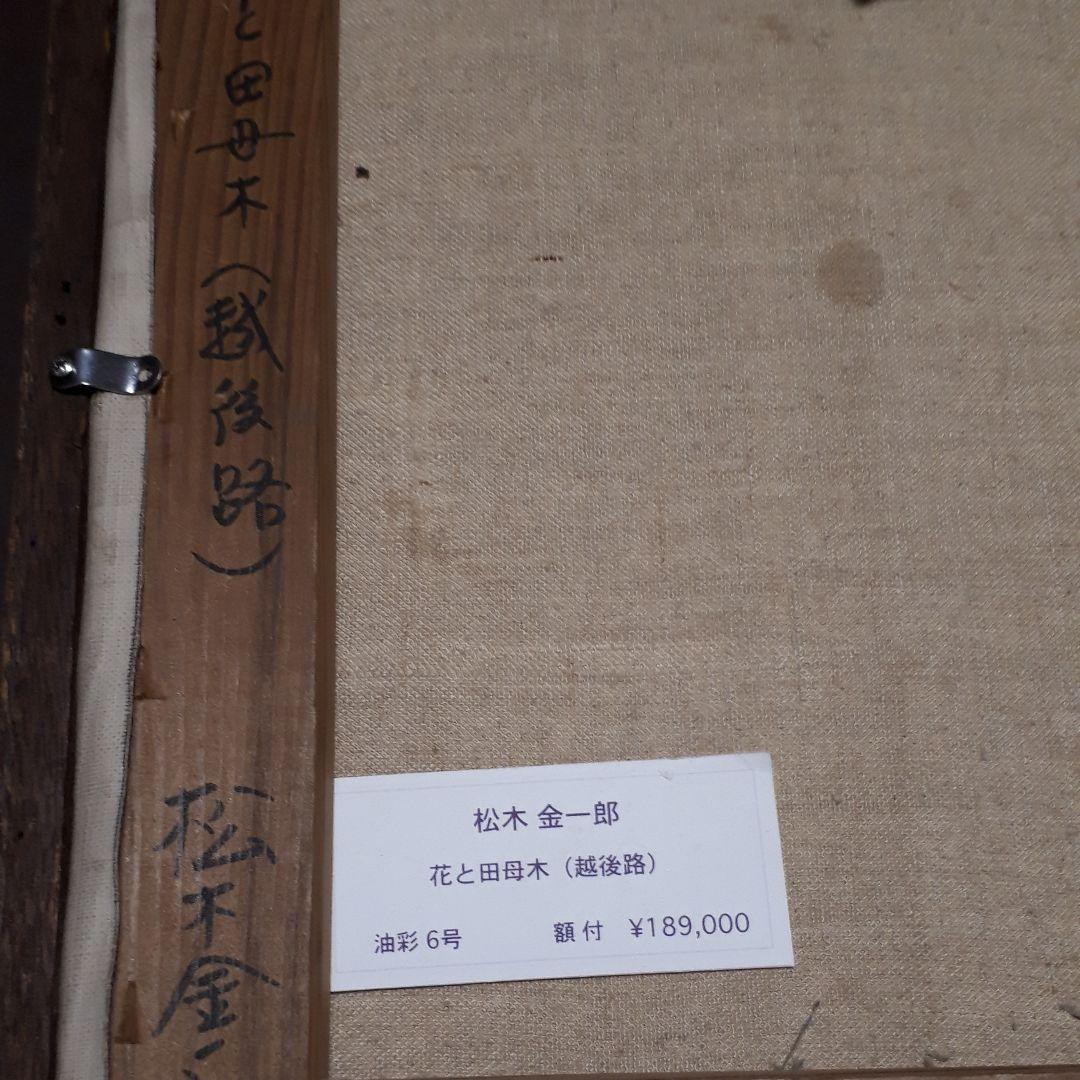 と田母木（越後路）
松木金一
松木 金一郎
花と田母木（越後路）
油彩 6号 額付 ¥189,000